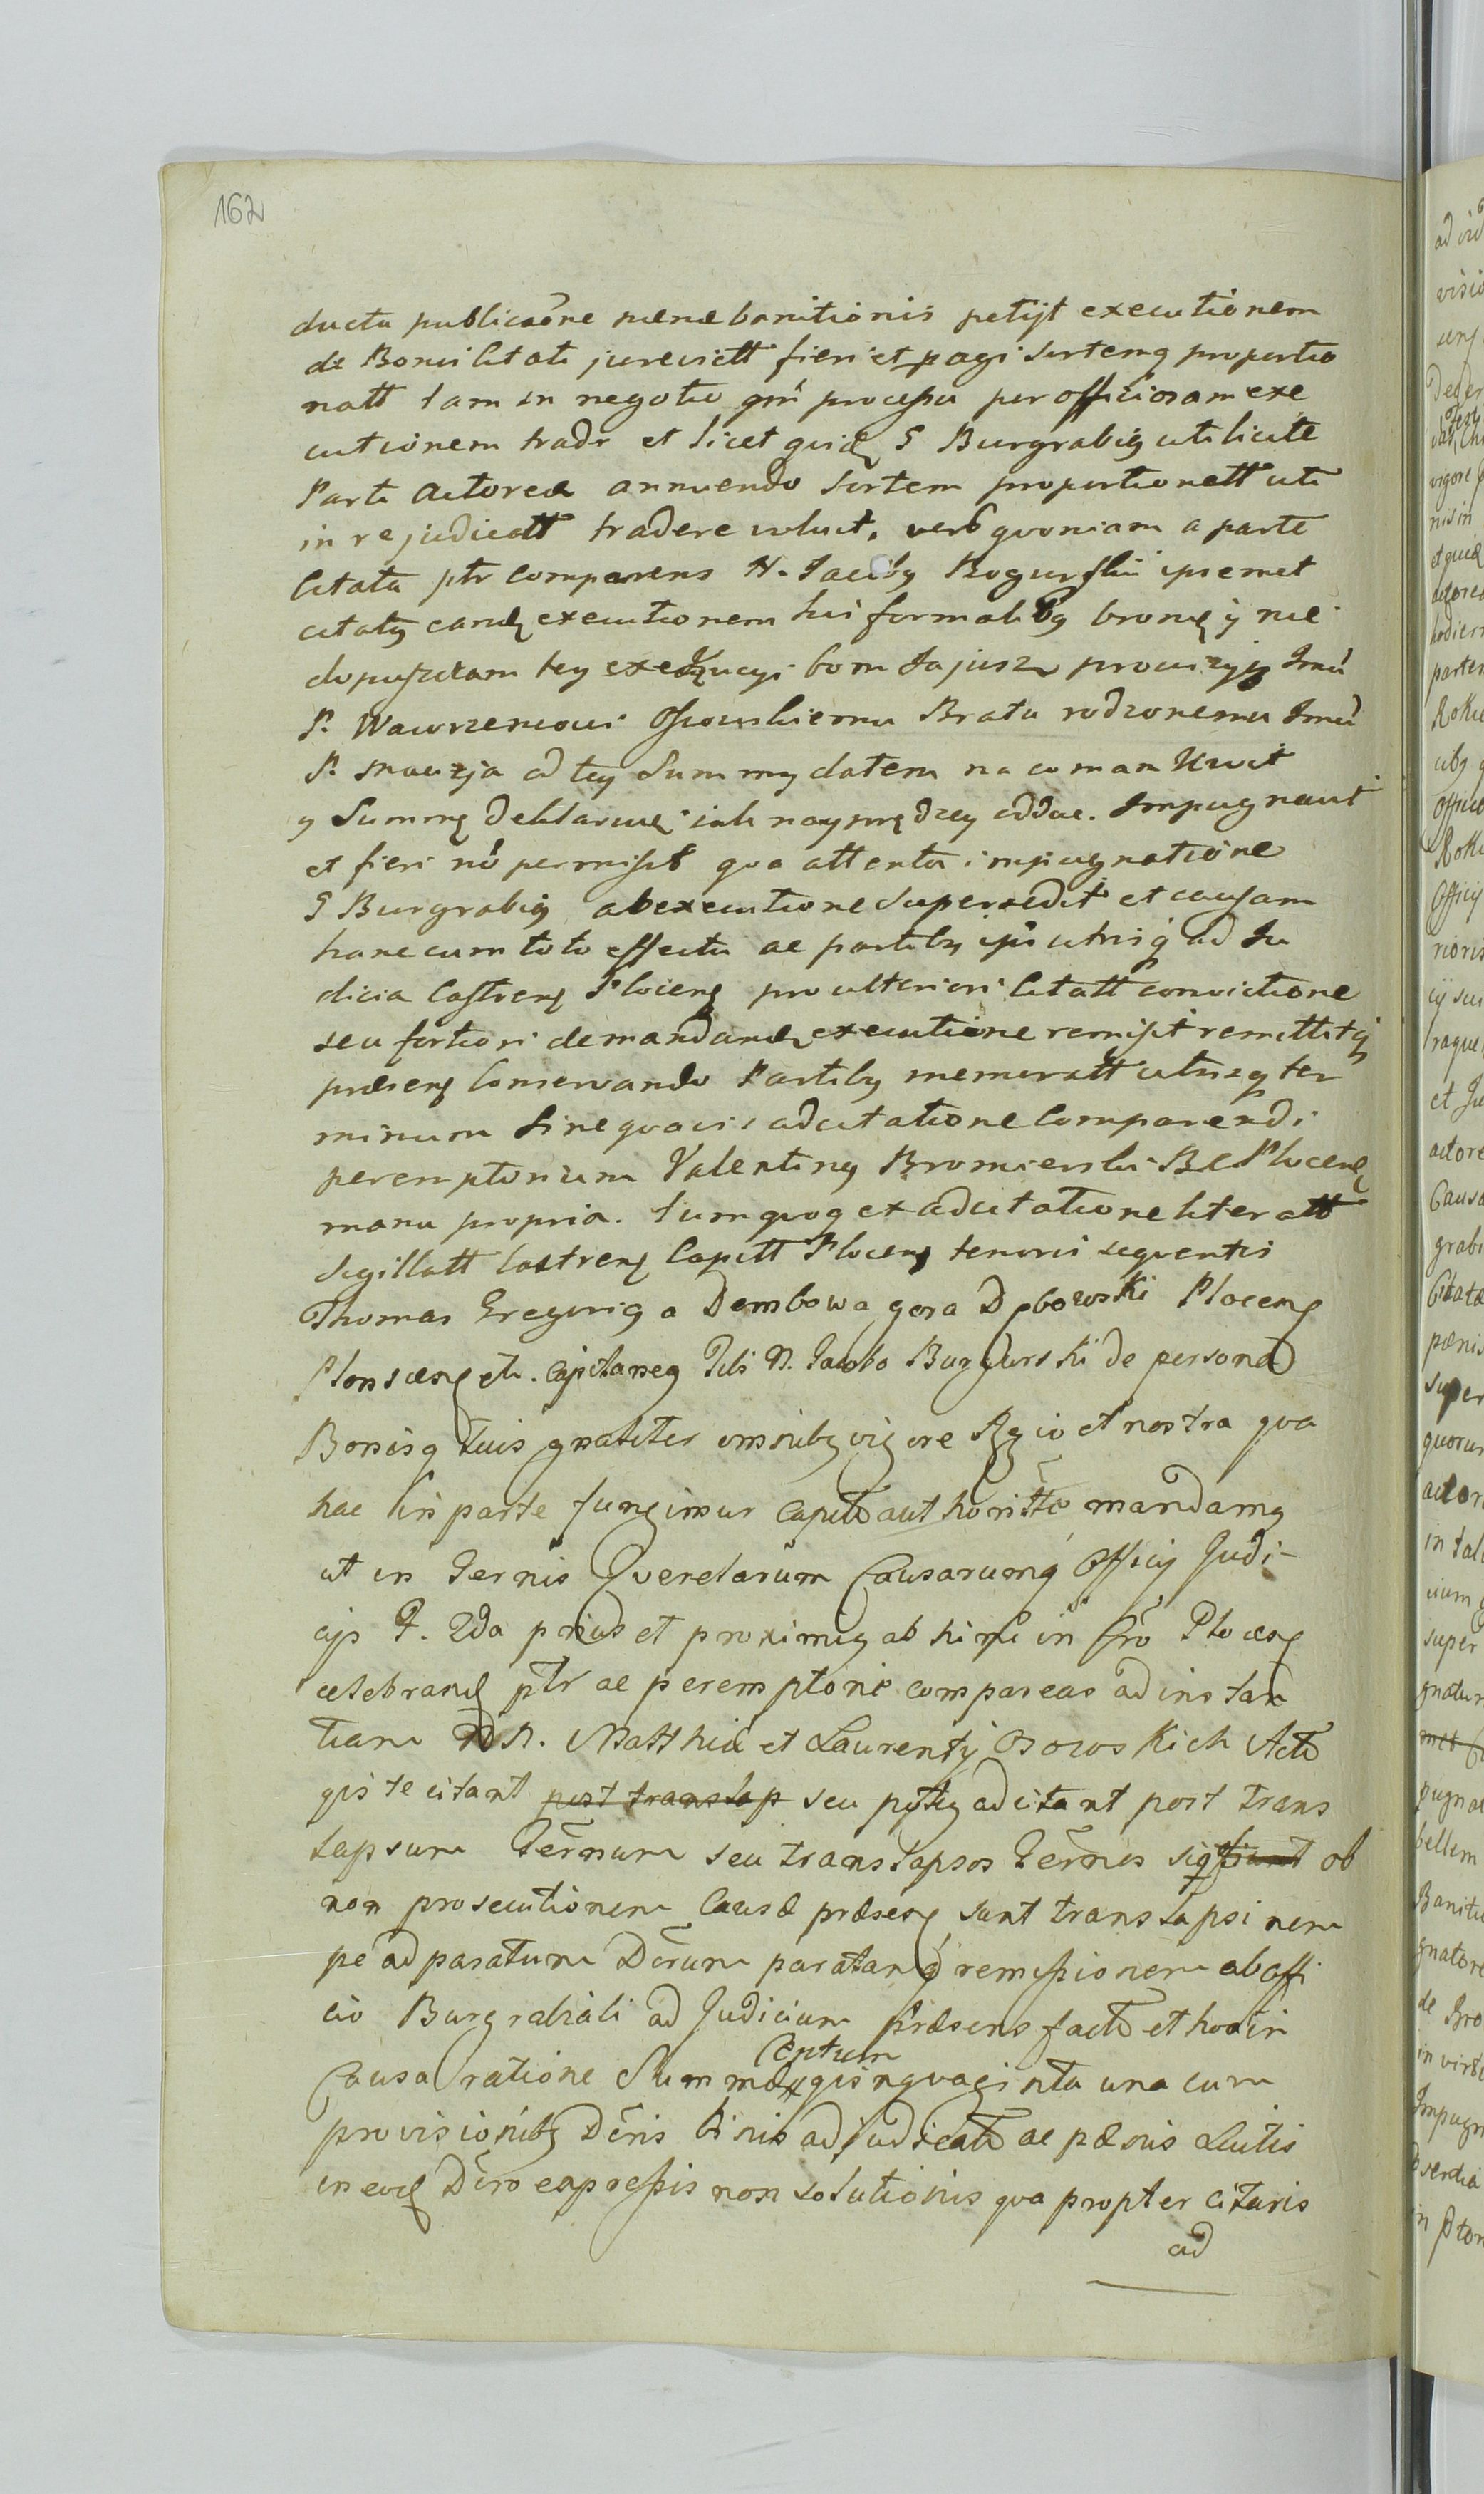 162
ducta publicaõne pœnæ banitionis petijt executionem
de Bonis Citati jurevictt fieri et pagi sortemq proportio
natt tam in negotio qm processu per officiosam exe
cutionem tradi et licet quidę G Burgrabiq citi licite
Parti Actoreæ annuendo sortem proportionatt uti
in re judicatt tradere voluit, verõ quoniam a parte
Citata ptr Comparens N. Jacobq Bogurskii ipsemet
citatq eandę executionem his formalibq bronię y nie
dopuszczam tey exekucyi bom Ja jusz prowizyią Imci
P. Wawrzencowi Ossowskiemu Bratu rodzonemu Imci
P. Macieja od tey Summy dałem na co mam Kwit
y Summę deklaruię iak nayprędzey oddac. Impugnavit
et fieri nõ permisit qua attenta impugnatione
G Burgrabiq ab executione supersedit et causam
hanc cum toto effectu ac partibq ipis utrisq ad Ju
dicia Castrenę Plocenę pro ulteriori Citatt convictione
seu fortiori demandandę executione remisit remittitq
præsenę Conservando Partibq memoratt utrisq ter
minum Sine quavis adcitatione Comparendi
peremptorium Valentinq Bromierski BC Plocenę
manu propria. Tum quoq ex adcitatione literatt
Sigillatt Castrenę Capitt Plocenę tenoris sequentis
Thomas Gregoriq a Dembowa gora Dębowski Plocenę
Plonscenę etc. Capitaneq Tibi N. Jacobo Bogurski de persona
Bonisq tuis gnaliter omnibq vigore Rgio et nostra qva
hac in parte fungimur Captti authoritte mandamq
ut in Termis Qverelarum Causarumq́ Officij Judi-
cijs F. 2da prius et proximiq ab hinc in Cro Plocenę
celebrandę ptr ac peremptorie compareas ad instan
tiam NN. Matthiæ et Laurentij Ossowskich Acto
qui te citant post translap seu potiq adcitant post trans
lapsum Termum seu translapsos Termos siq ob
non prosecutionem Causæ præsenę sunt translapsi nem
pe ad paratum Decrum paratamq́ remissionem ab offi
cio Burgrabiali ad Judicium Præsens facto et hoc in
Causa ratione Summæ Centum x qvinqvaginta una cum
provisionibq Decris binis adjudicatt ac pœnis Luitis
in eodę Decro expressis non solutionis qva propter Citaris
ad